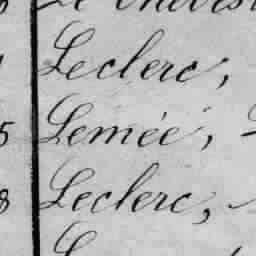 Leclerc,
5 Lemée,
8 Leclerc,